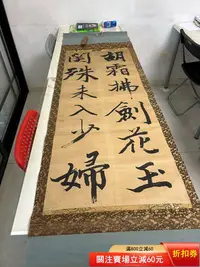 胡霜拂劍花玉
關殊未入少婦
滿800立減60
關注賣場立減60元
折扣券